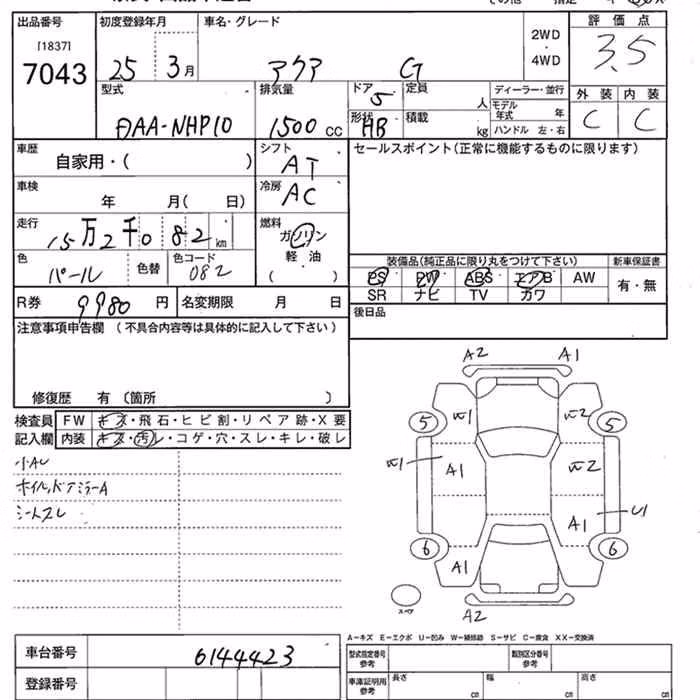 出品番号 初度登録年月 車名・グレード 2WD・4WD 評価点
[1837]
7043 25 3月 アクア G 3.5
型式 排気量 ドア 5 定員 人 ディーラー・並行 外装 内装
DAA-NHP10 1500cc 形状 HB 積載 kg モデル年式 年 C C
ハンドル 左・右
車歴 自家用・( ) シフト AT セールスポイント(正常に機能するものに限ります)
車検 年 月( 日) 冷房 AC
走行 15万2千082km 燃料 ガソリン
軽油
( )
色 パール 色替 色コード 082
装備品(純正品に限り丸をつけて下さい) 新車保証書
PS PW ABS エアB AW 有・無
SR ナビ TV カワ
R券 9980円 名変期限 月 日 後日品
注意事項申告欄 (不具合内容等は具体的に記入して下さい)
修復歴 有〔箇所 〕
検査員 FW キズ・飛石・ヒビ割・リペア跡・X要
記入欄 内装 キズ・汚レ・コゲ・穴・スレ・キレ・破レ
小AU
ホイル,ドアミラーA
シートスレ
A2 A1
5 W1 W2 5
W1 A1 W2
A1 U1
6 A1 6
スペア A2
A-キズ E-エクボ U-凹み W-補修跡 S-サビ C-腐食 XX-交換済
車台番号 6144423 型式指定番号 参考 類別区分番号 参考
登録番号 車庫証明用 参考 長さ cm 幅 cm 高さ cm